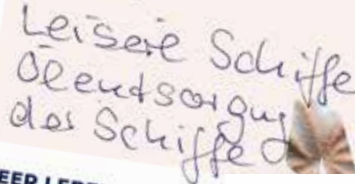 Leisere Schiffe
Ölentsorgung
des Schiffe